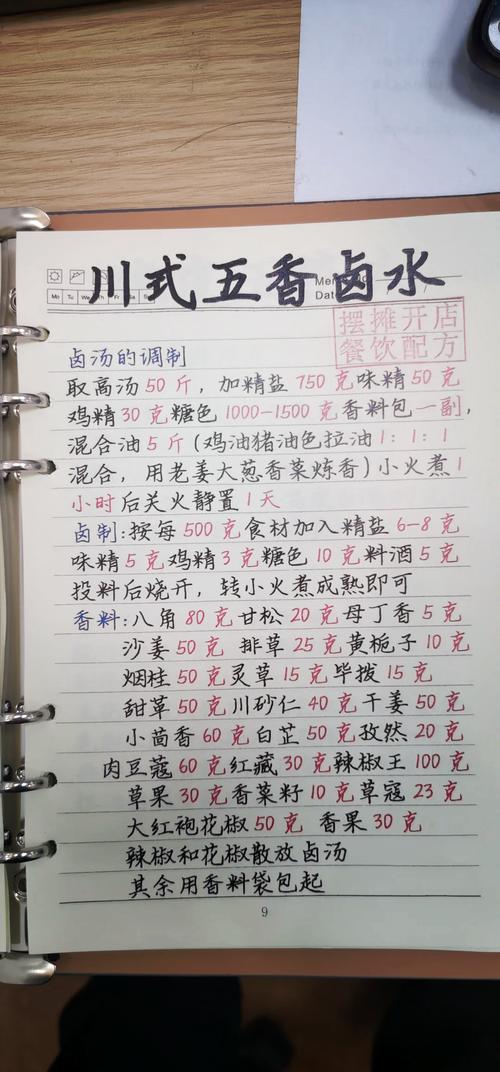 川式五香卤水
Mo Tu We Th Fr
Date
摆摊开店
餐饮配方
卤汤的调制
取高汤50斤，加精盐750克味精50克
鸡精30克糖色1000-1500克香料包一副，
混合油5斤（鸡油猪油色拉油1:1:1
混合，用老姜大葱香菜炼香）小火煮1
小时后关火静置1天
卤制:按每500克食材加入精盐6-8克
味精5克鸡精3克糖色10克料酒5克
投料后烧开，转小火煮成熟即可
香料:八角80克甘松20克母丁香5克
沙姜50克 排草25克黄栀子10克
烟桂50克灵草15克毕拨15克
甜草50克川砂仁40克干姜50克
小茴香60克白芷50克孜然20克
肉豆蔻60克红藏30克辣椒王100克
草果30克香菜籽10克草寇23克
大红袍花椒50克 香果30克
辣椒和花椒散放卤汤
其余用香料袋包起
9